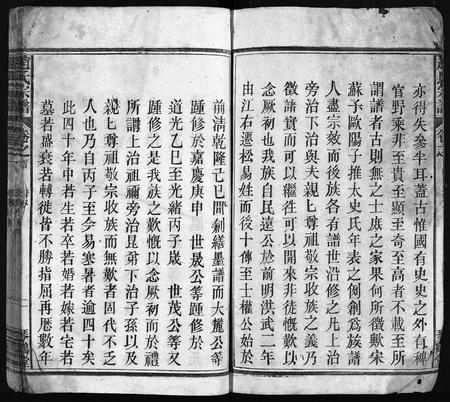 亦得失參半耳蓋古惟國有史史之外有稗
官野乘非至貴至顯至奇至高者不載至所
謂譜者古則無之士庶之家果何所徵歟宋
蘇子歐陽子推太史氏年表之例創爲族譜
人盡宗效而後族各有譜世沿修之凡上治
旁治下治與夫親親尊祖敬宗收族之義乃
徵諸實而可以繼徃可以開來非徒慨歎以
念厥初也我族自民遠公於前明洪武二年
由江右遷松易姓而後十傳至士權公始於
前清乾隆己巳間創繕墨譜而大麓公等
踵修於嘉慶庚申 世晟公等踵修於
道光乙巳至光緒丙子歲 世茂公等又
踵修之是我族之歎慨以念厥初而於禮
所謂上治祖禰旁治昆弟下治子孫以及
親親尊祖敬宗收族而無歎者固代不乏
人也乃自丙子至今易寒暑者逾四十矣
此四十年中若生若卒若婚若嫁若宅若
墓若盛衰若轉徙皆不勝指屈再歷數年
氏宗譜